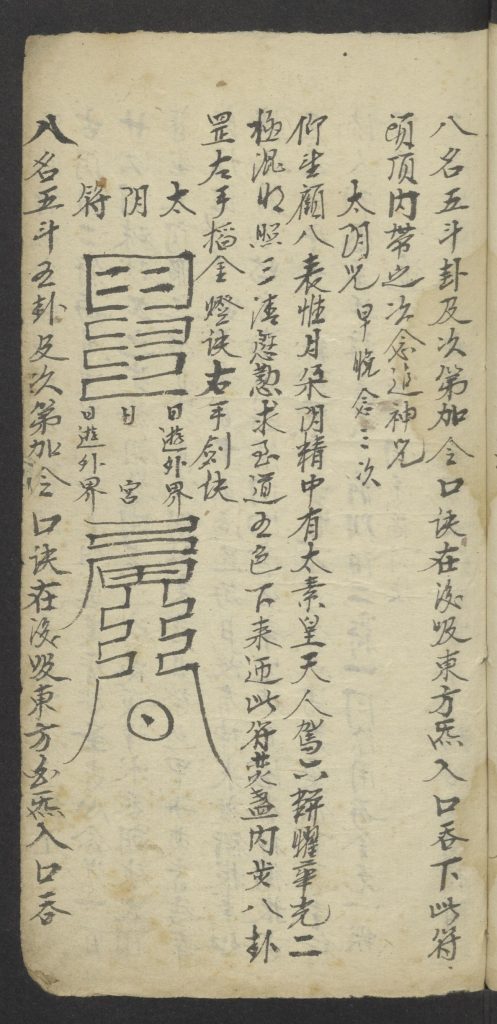 八名五斗卦及次第加令口诀在後吸東方炁入口吞下此符
頭頂内帶之次念追神咒
太阴咒早晚念三次
仰坐顧八表惟月朵阴精中有太素皇天人駕六軿耀華光二
極混明照三清慇懃求至道五色下來迎此符焚盞内步八卦
罡左手搯金燈诀右手剑诀
太阴符
日遊外界
日宮
日遊外界
八名五斗五卦及次第加令口诀在後吸東方玄炁入口吞